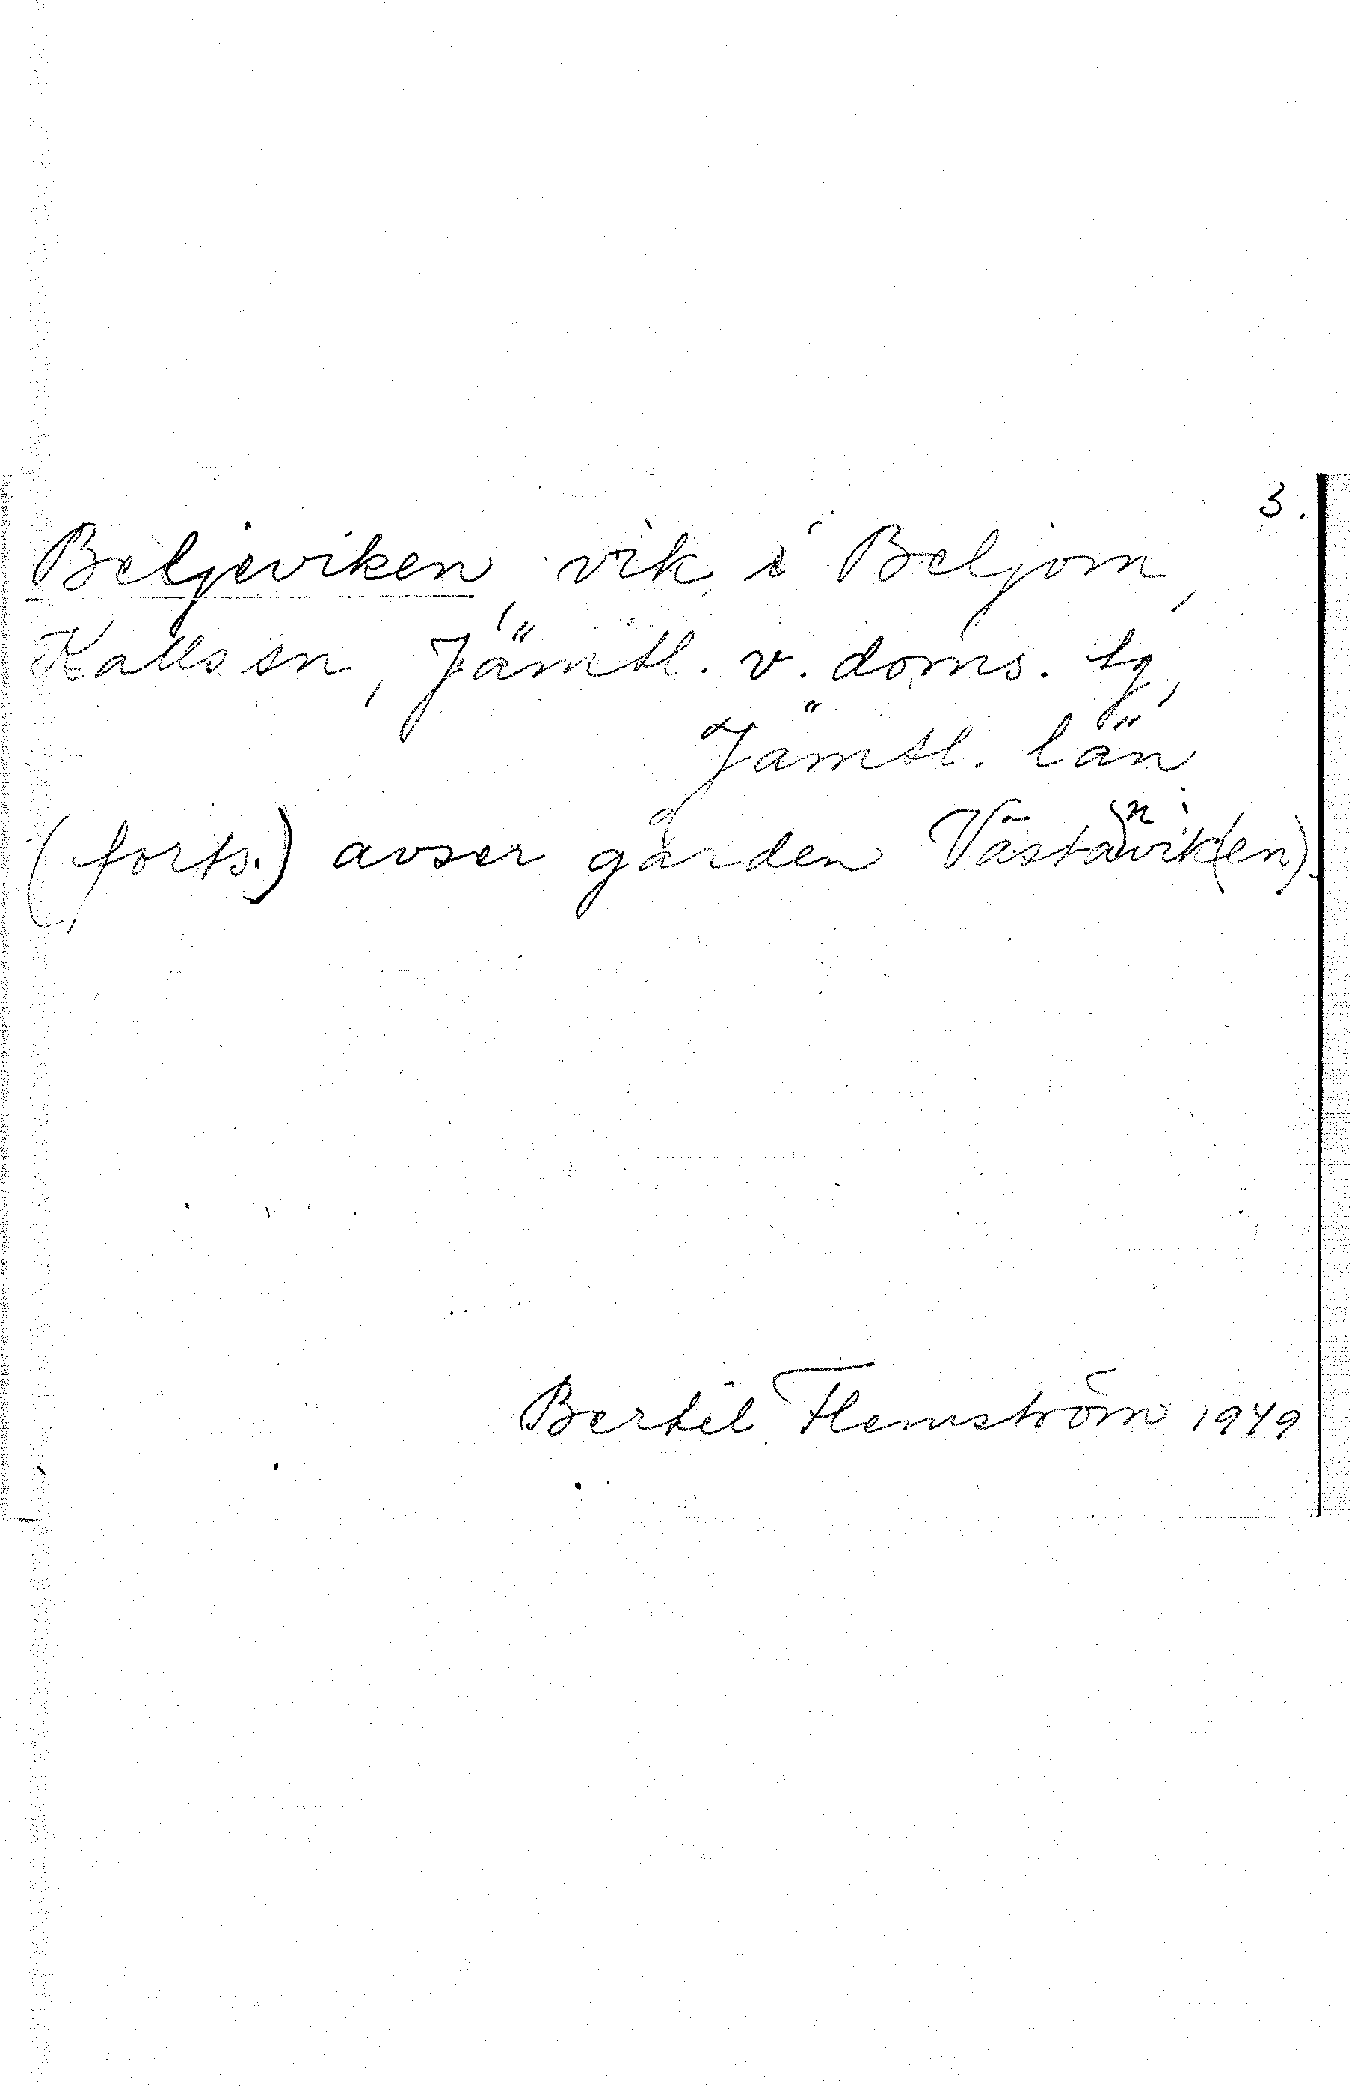 3.
Beljeviken, vik i Beljom,
Kalls sn, Jämtl. v. doms. tg,
Jämtl. län
(forts.) avser gården Västanvik(en).
Bertil Flemström 1949